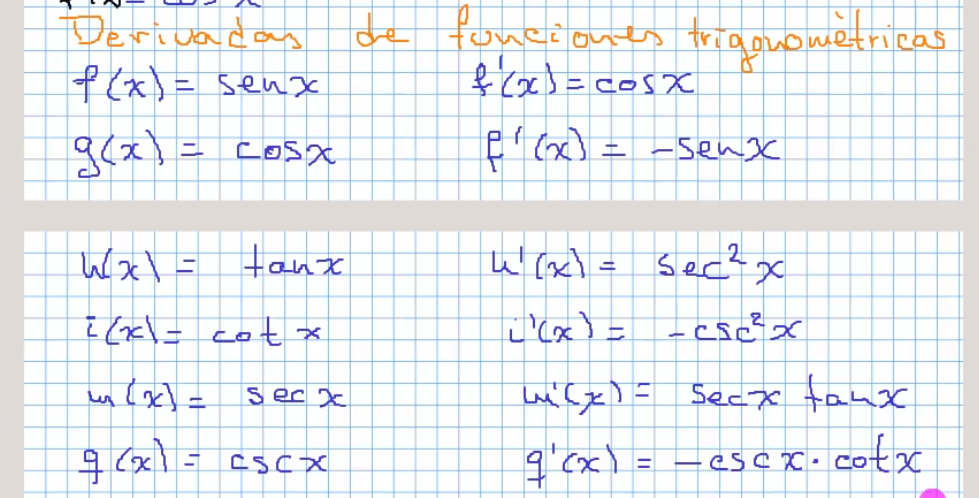 Derivadas de funciones trigonométricas
f(x) = senx f'(x) = cosx
g(x) = cosx f'(x) = -senx
h(x) = tanx h'(x) = sec²x
i(x) = cot x i'(x) = -csc²x
m(x) = sec x m'(x) = secx tanx
q(x) = cscx q'(x) = -cscx · cotx